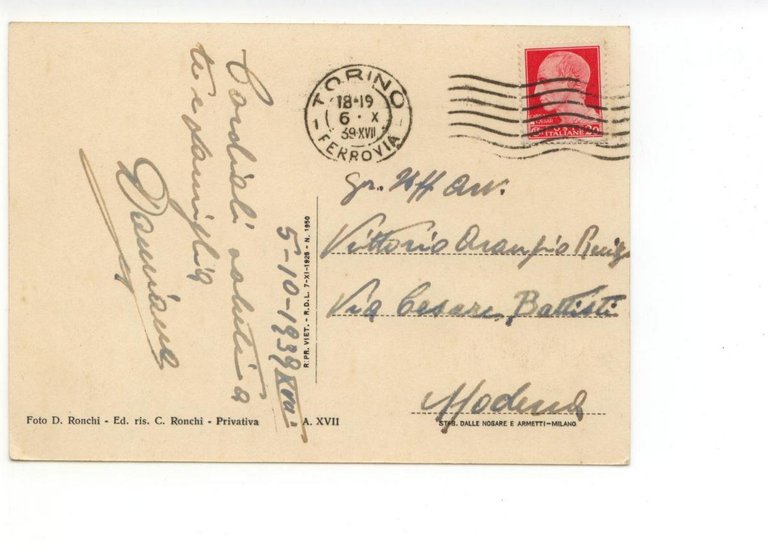 Cordiali saluti a
te e famiglia
Damiano
5-10-1939 XVII
R. PR. VIET. - R.D.L. 7-XI-1925 - N. 1950
TORINO
18-19
6 · X
39·XVII
- FERROVIA -
ITALIANE 20
Gr. Uff. Avv.
Vittorio
Via Cesare Battisti
Modena
Foto D. Ronchi - Ed. ris. C. Ronchi - Privativa
A. XVII
STAB. DALLE NOGARE E ARMETTI-MILANO